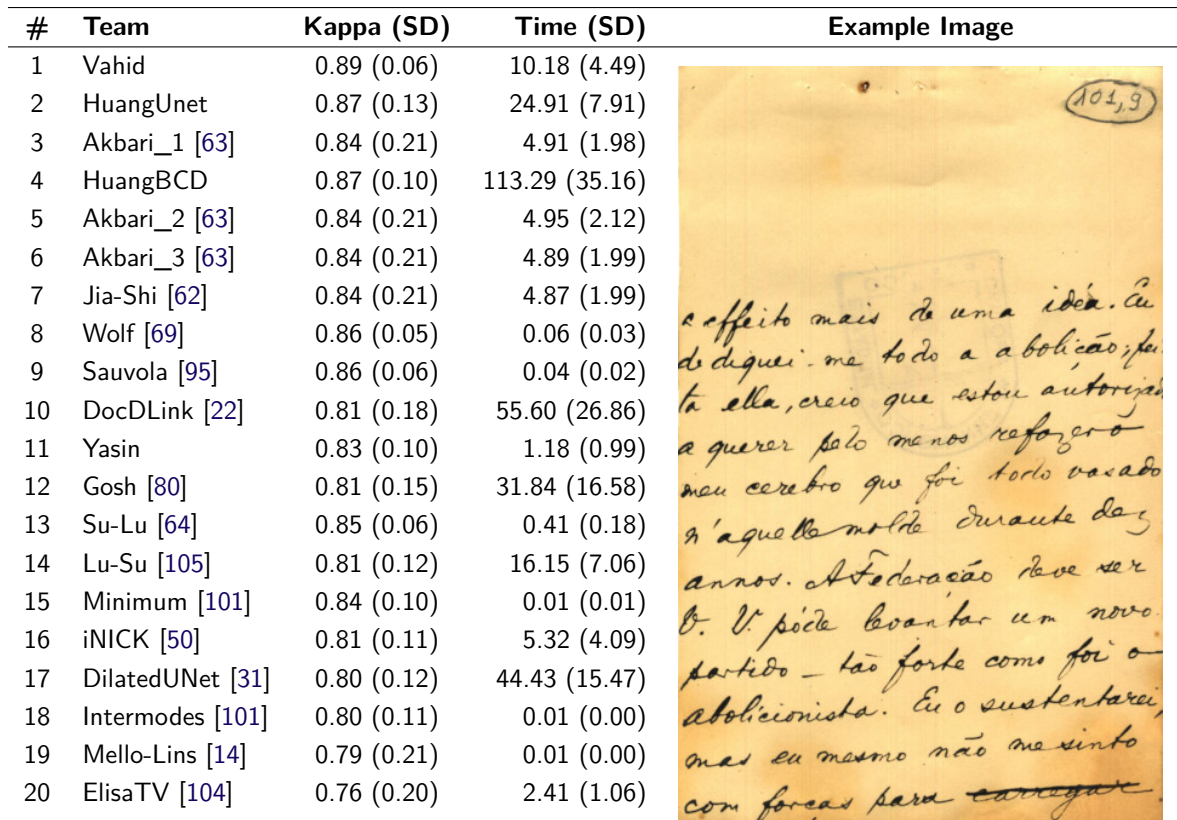 # Team Kappa (SD) Time (SD) Example Image
1 Vahid 0.89 (0.06) 10.18 (4.49)
2 HuangUnet 0.87 (0.13) 24.91 (7.91)
3 Akbari_1 [63] 0.84 (0.21) 4.91 (1.98)
4 HuangBCD 0.87 (0.10) 113.29 (35.16)
5 Akbari_2 [63] 0.84 (0.21) 4.95 (2.12)
6 Akbari_3 [63] 0.84 (0.21) 4.89 (1.99)
7 Jia-Shi [62] 0.84 (0.21) 4.87 (1.99)
8 Wolf [69] 0.86 (0.05) 0.06 (0.03)
9 Sauvola [95] 0.86 (0.06) 0.04 (0.02)
10 DocDLink [22] 0.81 (0.18) 55.60 (26.86)
11 Yasin 0.83 (0.10) 1.18 (0.99)
12 Gosh [80] 0.81 (0.15) 31.84 (16.58)
13 Su-Lu [64] 0.85 (0.06) 0.41 (0.18)
14 Lu-Su [105] 0.81 (0.12) 16.15 (7.06)
15 Minimum [101] 0.84 (0.10) 0.01 (0.01)
16 iNICK [50] 0.81 (0.11) 5.32 (4.09)
17 DilatedUNet [31] 0.80 (0.12) 44.43 (15.47)
18 Intermodes [101] 0.80 (0.11) 0.01 (0.00)
19 Mello-Lins [14] 0.79 (0.21) 0.01 (0.00)
20 ElisaTV [104] 0.76 (0.20) 2.41 (1.06)
101,9
effeito mais de uma idéa. Eu
dediquei-me todo a abolicão; fei-
ta ella, creio que estou autorizad
a querer pelo menos refazer o
meu cerebro que foi todo vasado
n'aquelle molde durante dez
annos. A Federação deve ser
V. V. póde levantar um novo
partido - tão forte como foi o
abolicionista. Eu o sustentarei,
mas eu mesmo não me sinto
com forcas para carregar